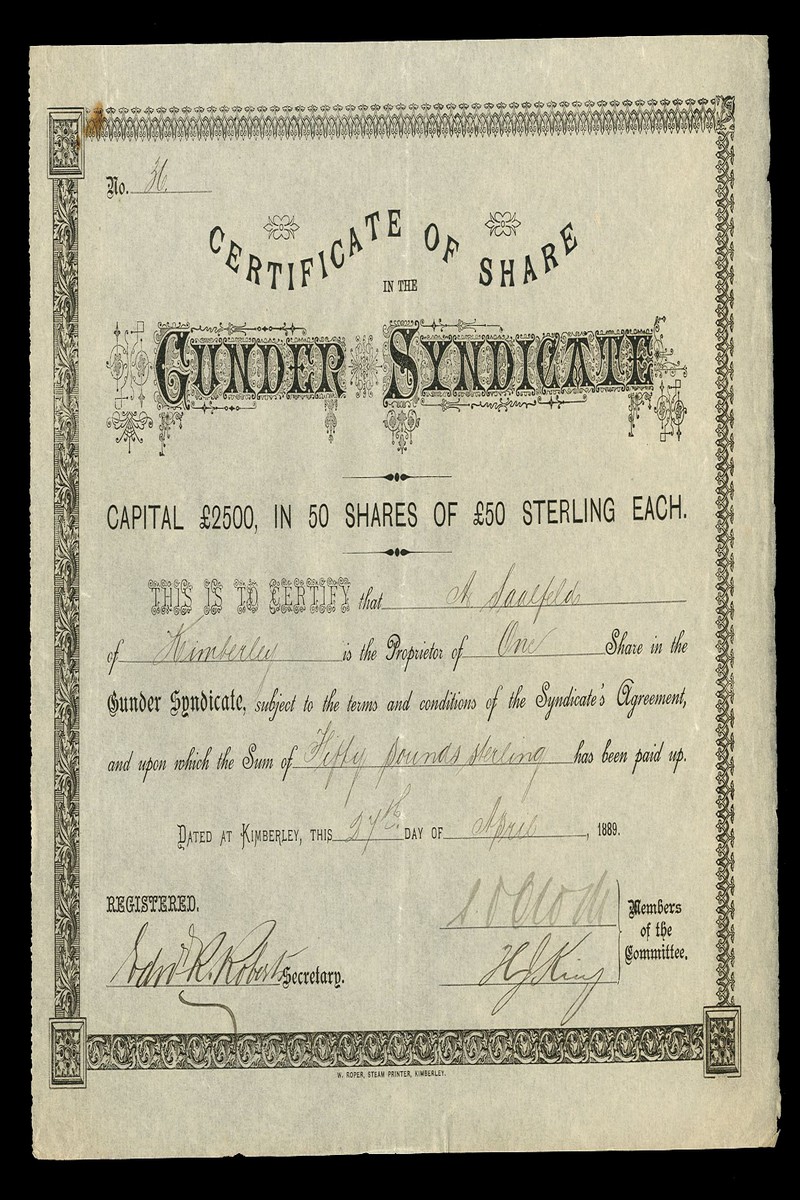 No. 36.
CERTIFICATE OF SHARE
IN THE
GUNDER SYNDICATE
CAPITAL £2500, IN 50 SHARES OF £50 STERLING EACH.
THIS IS TO CERTIFY that A Saalfeld
of Kimberley is the Proprietor of One Share in the
Gunder Syndicate, subject to the terms and conditions of the Syndicate's Agreement,
and upon which the Sum of Fifty pounds sterling has been paid up.
DATED AT KIMBERLEY, THIS 27th DAY OF April, 1889.
REGISTERED.
Members
of the
Committee.
Edwd R. Roberts Secretary.
H J King
W. ROPER, STEAM PRINTER, KIMBERLEY.